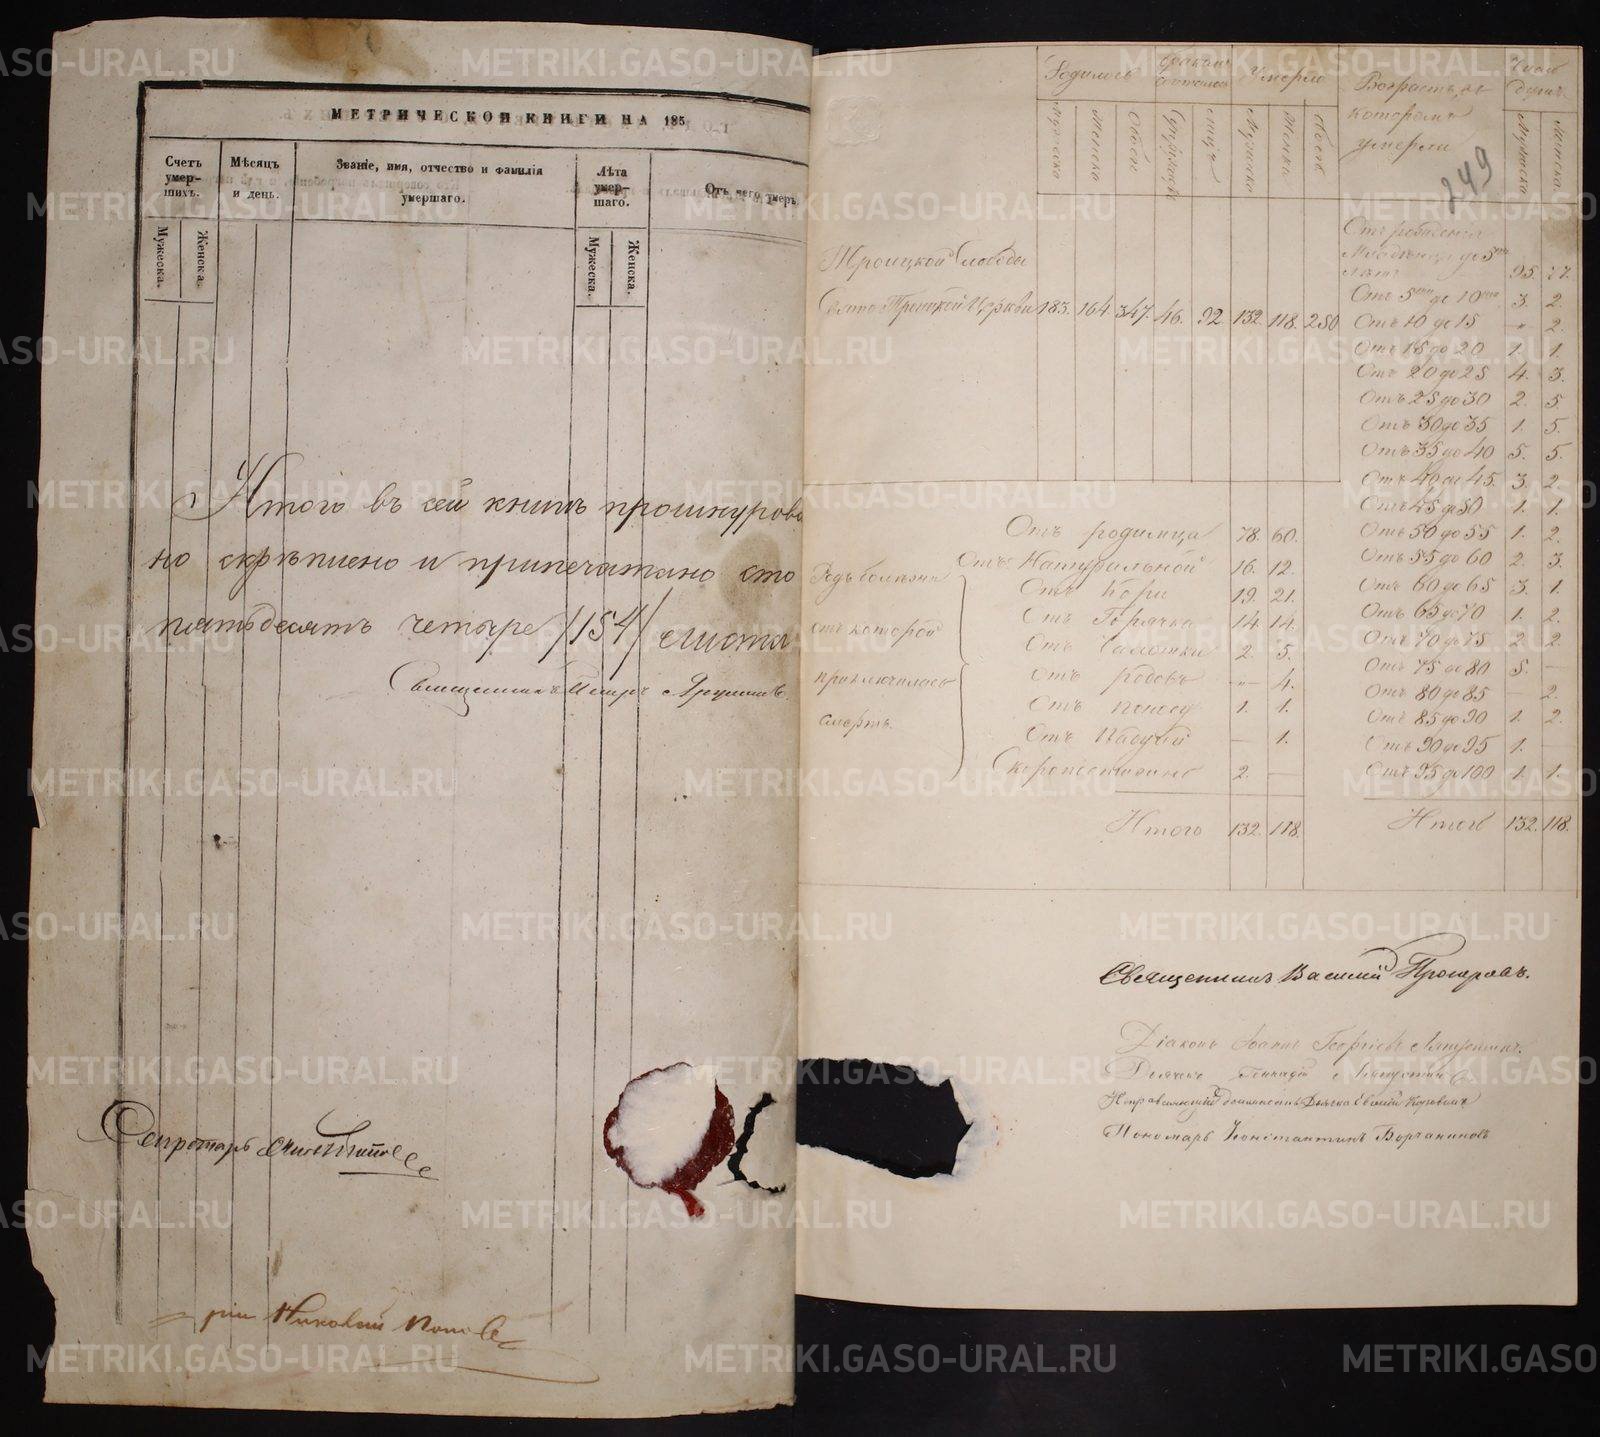 МЕТРИЧЕСКОЙ КНИГИ НА 185
Счетъ умер-шихъ.
Мѣсяцъ и день.
Званіе, имя, отчество и фамилія умершаго.
Лѣта умер-шаго.
Отъ чего умеръ
Мужеска.
Женска.
Мужеска.
Женска.
Итого въ сей книгѣ прошнурова
но скрѣплено и припечатано сто
пятьдесятъ четыре /154/ листа
Священникъ Петръ
Секретарь
Николай Попов
Родилось
Умерло
Возрастъ, въ
которомъ
умерли
Число
душъ
Мужеска
Женска
Обоего
Супружествъ
лицъ
Мужеска
Женска
Обоего
Мужеска
Женска
249
Троицкой Слободы
Свято Троицкой Церкви 183. 164. 347. 46. 92. 132. 118. 250
Отъ рожденія
Младенца до 5ти
лѣтъ 95. 77.
Отъ 5ти до 10ти 3. 2.
Отъ 10 до 15 -"- 2.
Отъ 15 до 20 1. 1.
Отъ 20 до 25 4. 3.
Отъ 25 до 30 2. 5.
Отъ 30 до 35 1. 5.
Отъ 35 до 40 5. 5.
Отъ 40 до 45 3. 2.
Отъ 45 до 50 1. 1.
Отъ 50 до 55 1. 2.
Отъ 55 до 60 2. 3.
Отъ 60 до 65 3. 1.
Отъ 65 до 70 1. 2.
Отъ 70 до 75 2. 2.
Отъ 75 до 80 5. —
Отъ 80 до 85 — 2.
Отъ 85 до 90 1. 2.
Отъ 90 до 95 1. —
Отъ 95 до 100 1. 1.
Итого 132. 118.
Родъ болѣзни
отъ которой
приключилась
смерть.
Отъ родимца 78. 60.
Отъ Натуральной 16. 12.
Отъ Кори 19. 21.
Отъ Горячки 14. 14.
Отъ Чахотки 2. 5.
Отъ родовъ -"- 4.
Отъ поносу 1. 1.
Отъ 1.
Скоропостижно 2. —
Итого 132. 118.
Священникъ Василій
Діаконъ Іоаннъ Георгіевъ
Дьячекъ Геннадій
Исправляющій должность Дьячка
Пономарь Константинъ
METRIKI.GASO-URAL.RU